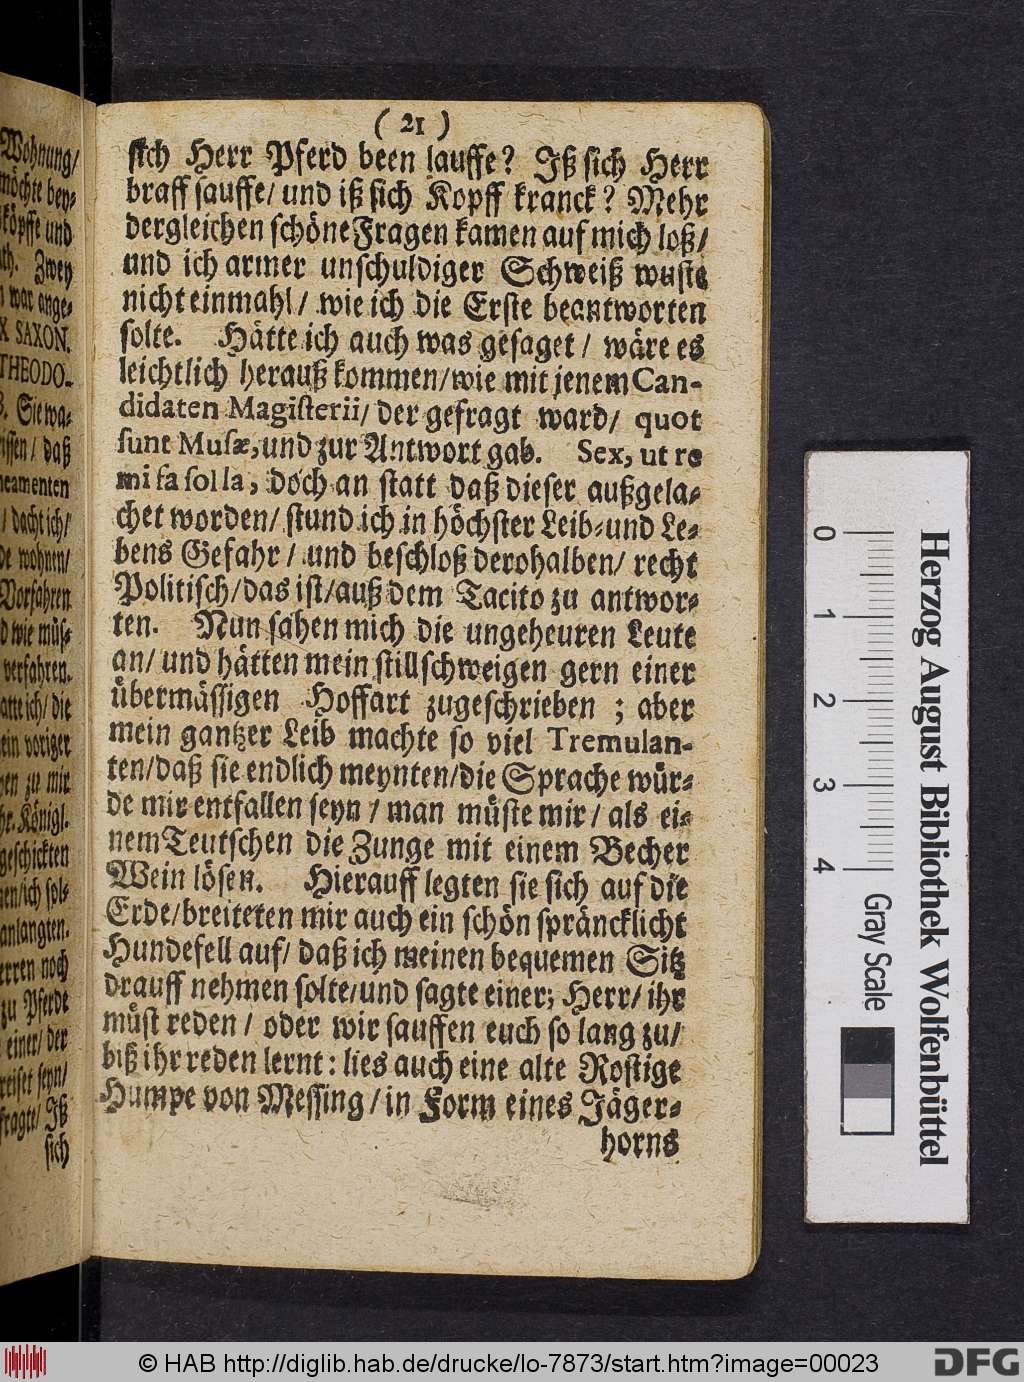 ( 21 )
sich Herr Pferd been lauffe? Iß sich Herr
braff sauffe/ und iß sich Kopff kranck? Mehr
dergleichen schöne Fragen kamen auf mich loß/
und ich armer unschuldiger Schweiß wuste
nicht einmahl/ wie ich die Erste beantworten
solte. Hätte ich auch was gesaget/ wäre es
leichtlich herauß kommen/wie mit jenem Can-
didaten Magisterii/ der gefragt ward/ quot
sunt Musæ, und zur Antwort gab. Sex, ut re
mi fa sol la, doch an statt daß dieser außgela-
chet worden/ stund ich in höchster Leib-und Le-
bens Gefahr/ und beschloß derohalben/ recht
Politisch/das ist/auß dem Tacito zu antwor-
ten. Nun sahen mich die ungeheuren Leute
an/ und hätten mein stillschweigen gern einer
übermässigen Hoffart zugeschrieben ; aber
mein gantzer Leib machte so viel Tremulan-
ten/daß sie endlich meynten/die Sprache wür-
de mir entfallen seyn/ man müste mir/ als ei-
nem Teutschen die Zunge mit einem Becher
Wein lösen. Hierauff legten sie sich auf die
Erde/breiteten mir auch ein schön spräncklicht
Hundefell auf/ daß ich meinen bequemen Sitz
drauff nehmen solte/und sagte einer; Herr/ ihr
müst reden/ oder wir sauffen euch so lang zu/
biß ihr reden lernt: lies auch eine alte Rostige
Humpe von Messing/in Form eines Jäger-
horns
Wohnung/
möchte bey-
köpffe und
Zwey
war ange-
X SAXON.
THEODO-
Sie wa-
/ daß
/ dacht ich/
wohnen/
Vorfahren
wie müs-
verfahren.
ich/ die
voriger
zu mir
Königl.
geschickten
/ich sol-
anlangten.
noch
zu Pferde
einer/ der
seyn/
fragte/ Iß
sich
0
1
2
3
4
Gray Scale
Herzog August Bibliothek Wolfenbüttel
© HAB http://diglib.hab.de/drucke/lo-7873/start.htm?image=00023
DFG